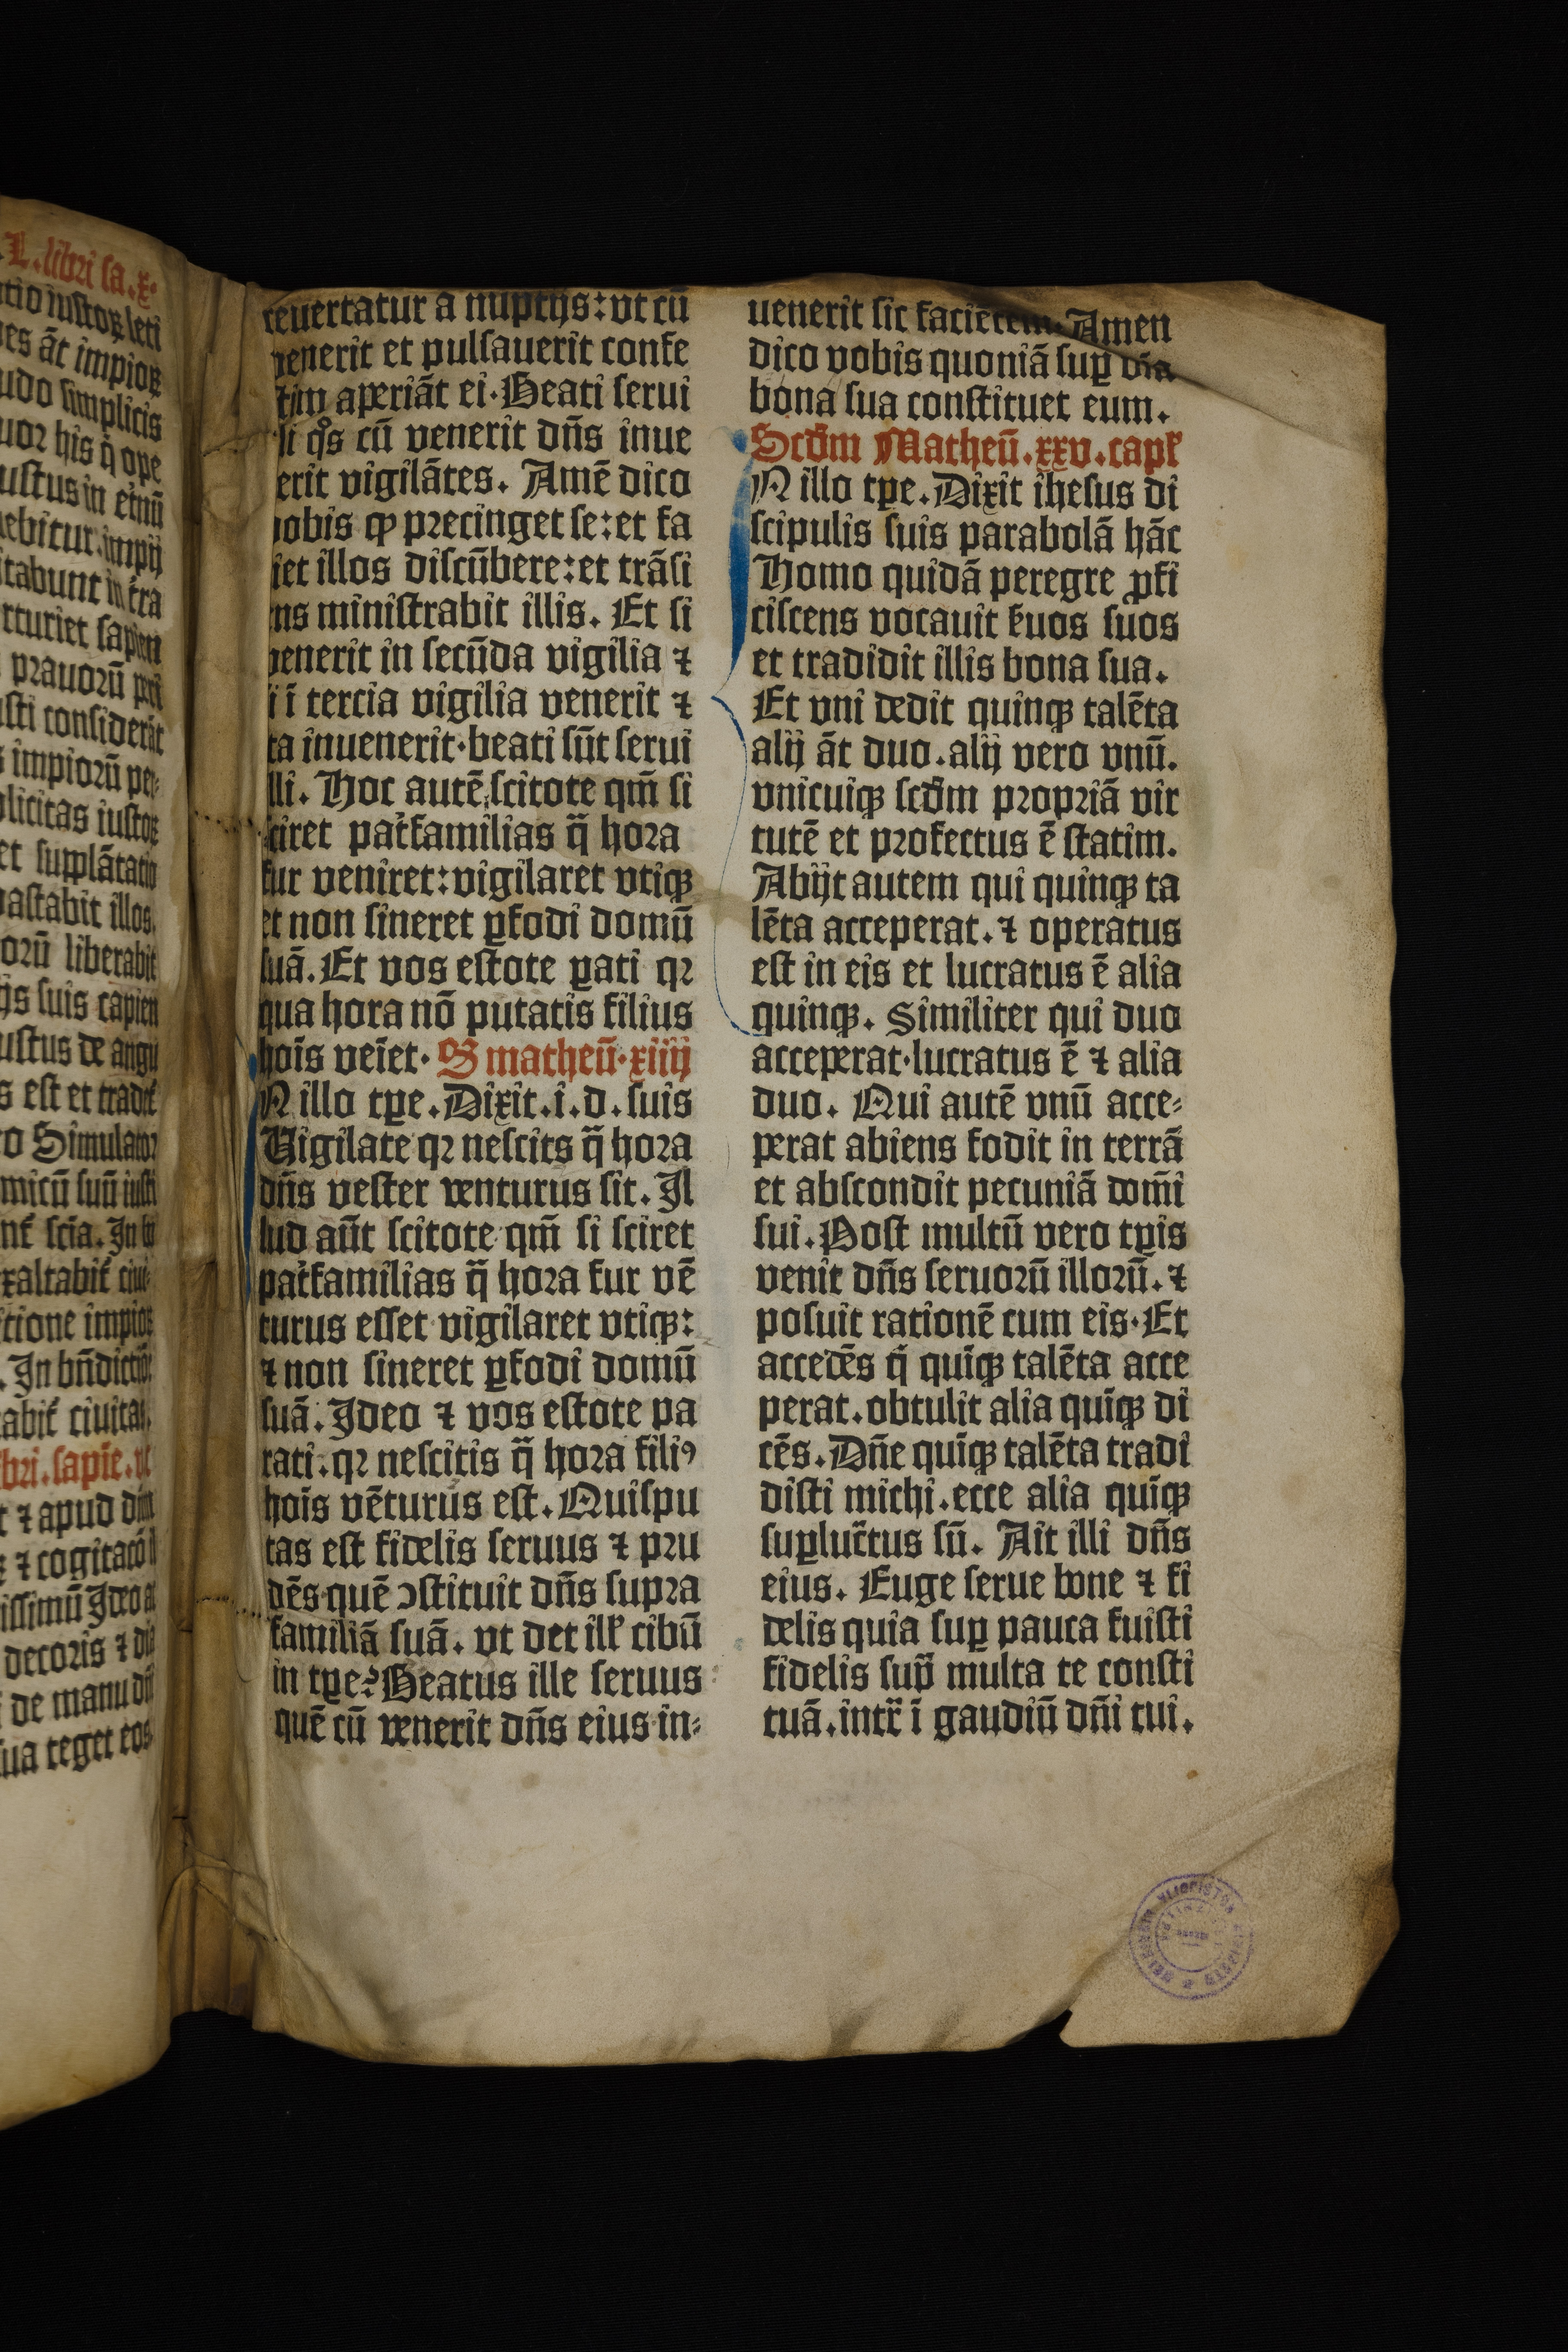 L. libri sa. x.
tio iustoꝝ leti
es āt impioꝝ
udo simplicis
uor his q̄ ope
ustus in einū
ebitur. impij
itabunt in tra
rturiet sapien
prauorū pri
usti considerāt
impiorū per-
plicitas iustoꝝ
et supplātatio
uastabit illos.
orū liberabit
ijs suis capien
ustus de angu
s est et tradit̄
o Simulator
micū suū iusti
nt̄ scīa. In bī
xaltabit̄ ciui-
itione impioꝝ
. In bn̄dictōe
abit̄ ciuitas.
bri. sapīe. v
t ⁊ apud dn̄m
⁊ cogitacō il
issimū Ideo ac
decoris ⁊ dia
de manu dn̄i
ua teget eos
reuertatur a nuptijs: vt cū
venerit et pulsauerit confe
stim aperiāt ei. Beati serui
li qͦs cū venerit dn̄s inue
erit vigilātes. Amē dico
vobis ꝙ precinget se: et fa
iet illos discūbere: et trāsi
ens ministrabit illis. Et si
venerit in secūda vigilia ⁊
i ī tercia vigilia venerit ⁊
ta inuenerit. beati sūt serui
lli. Hoc autē scitote qm̄ si
sciret pat̄familias q̄ hora
fur veniret: vigilaret vtiqꝫ
et non sineret ꝑfodi domū
suā. Et vos estote ꝑati qꝛ
qua hora nō putatis filius
hoīs veīet. S matheū. xiiij
N illo tꝑe. Dixit. i. d. suis
Vigilate qꝛ nescits q̄ hora
dn̄s vester venturus sit. Il
lud aūt scitote qm̄ si sciret
pat̄familias q̄ hora fur vē
turus esset vigilaret vtiqꝫ:
⁊ non sineret ꝑfodi domū
suā. Ideo ⁊ vos estote pa
rati. qꝛ nescitis q̄ hora filiꝰ
hoīs vēturus est. Quis pu
tas est fidelis seruus ⁊ pru
dēs quē ꝯstituit dn̄s supra
familiā suā. vt det ill̄ cibū
in tꝑe? Beatus ille seruus
quē cū venerit dn̄s eius in-
uenerit sic faciētem. Amen
dico vobis quoniā suꝑ oīa
bona sua constituet eum.
Scd̄m Matheū. xxv. capl̄
N illo tꝑe. Dixit ihesus di
scipulis suis parabolā hāc
Homo quidā peregre ꝓfi
ciscens vocauit s̄uos suos
et tradidit illis bona sua.
Et vni dedit quinqꝫ talēta
alij āt duo. alij vero vnū.
vnicuiqꝫ scd̄m propriā vir
tutē et profectus ē statim.
Abijt autem qui quinqꝫ ta
lēta acceperat. ⁊ operatus
est in eis et lucratus ē alia
quinqꝫ. Similiter qui duo
acceperat. lucratus ē ⁊ alia
duo. Qui autē vnū acce-
perat abiens fodit in terrā
et abscondit pecuniā dom̄i
sui. Post multū vero tꝑis
venit dn̄s seruorū illorū. ⁊
posuit rationē cum eis. Et
accedēs q̄ quīqꝫ talēta acce
perat. obtulit alia quīqꝫ di
cēs. Dn̄e quīqꝫ talēta tradi
disti michi. ecce alia quīqꝫ
suꝑluc̄tus sū. Ait illi dn̄s
eius. Euge serue bone ⁊ fi
delis quia suꝑ pauca fuisti
fidelis sup̄ multa te consti
tuā. intr̄ ī gaudiū dn̄i tui.